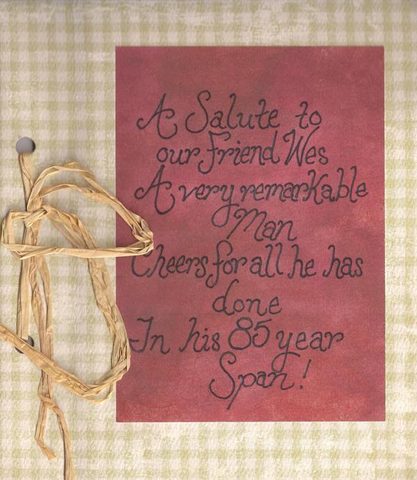 A Salute to
our Friend Wes
A very remarkable
Man
Cheers for all he has
done
In his 85 year
Span!